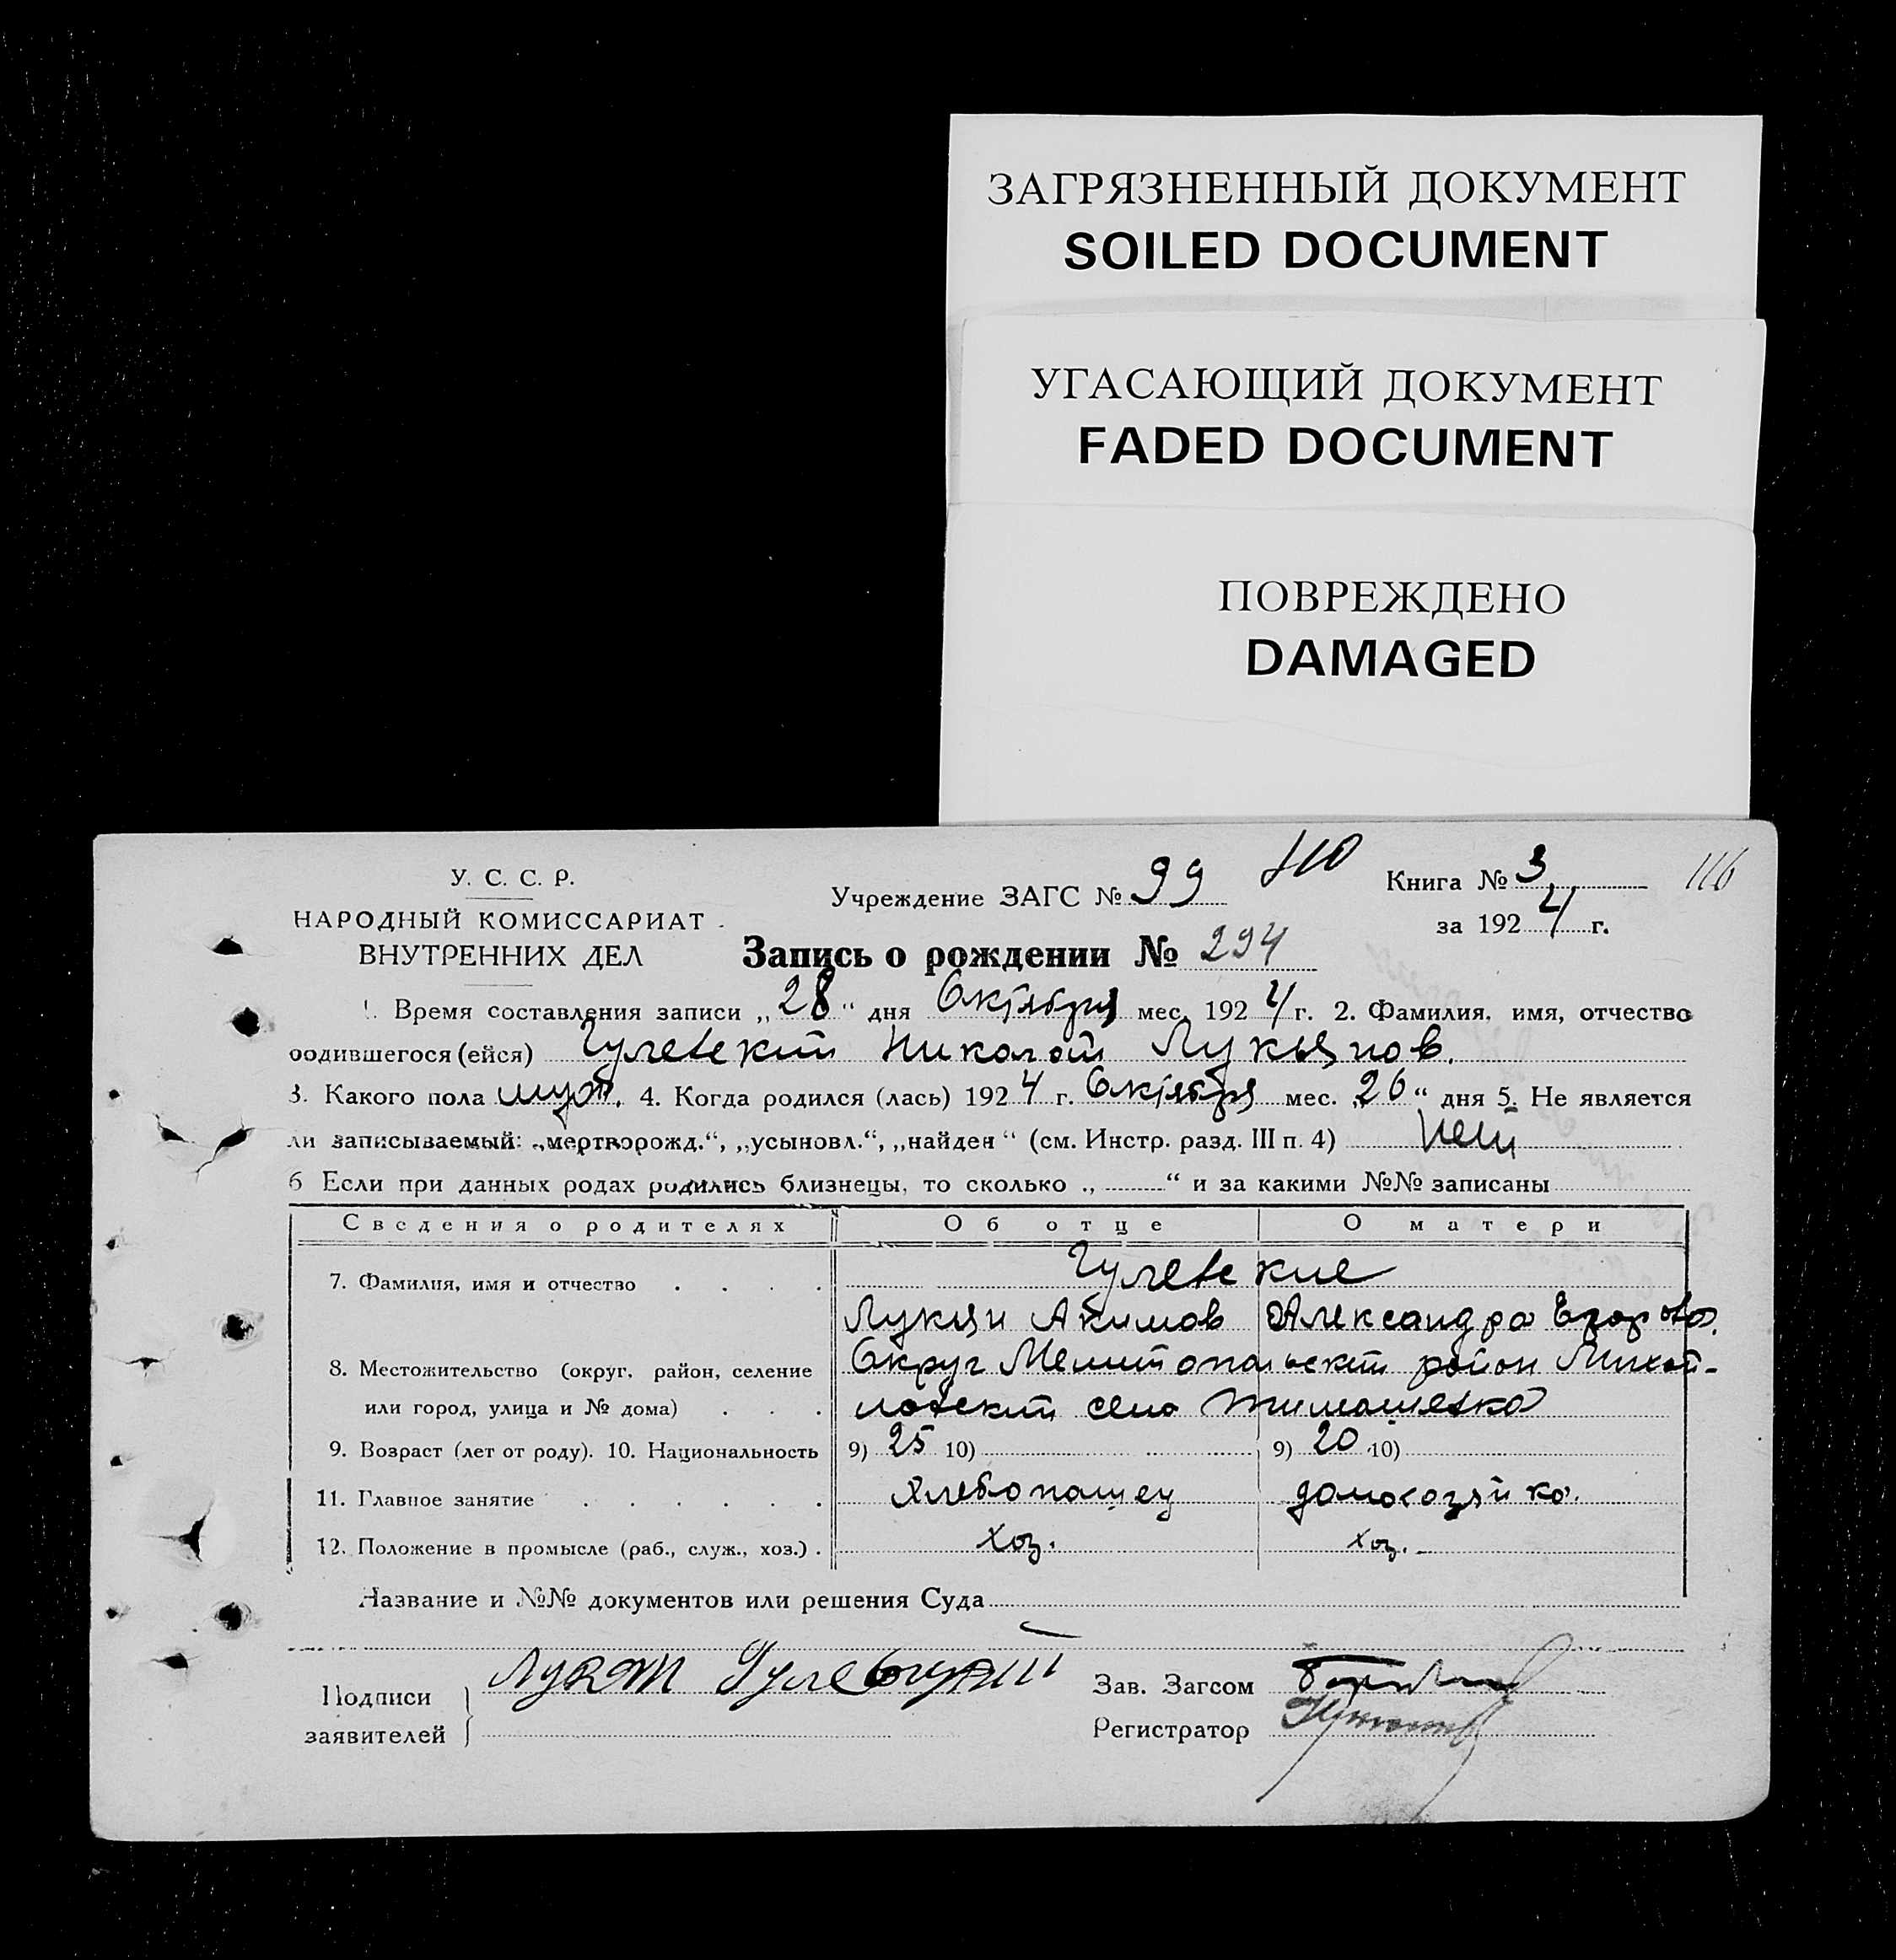 ЗАГРЯЗНЕННЫЙ ДОКУМЕНТ
SOILED DOCUMENT
УГАСАЮЩИЙ ДОКУМЕНТ
FADED DOCUMENT
ПОВРЕЖДЕНО
DAMAGED
У. С. С. Р.
НАРОДНЫЙ КОМИССАРИАТ
ВНУТРЕННИХ ДЕЛ
Учреждение ЗАГС № 99
Книга № 3 116
за 1924 г.
Запись о рождении № 294
1. Время составления записи „28“ дня Октября мес. 1924 г. 2. Фамилия, имя, отчество
родившегося (ейся) Гулевский Николай Лукьянов.
3. Какого пола муж. 4. Когда родился (лась) 1924 г. Октября мес. „26“ дня 5. Не является
ли записываемый: „мертворожд.“, „усыновл.“, „найден“ (см. Инстр. разд. III п. 4) нет
6 Если при данных родах родились близнецы, то сколько „ “ и за какими №№ записаны
Сведения о родителях Об отце О матери
7. Фамилия, имя и отчество Гулевские
Лукян Акимов Александра Егоров.
8. Местожительство (округ, район, селение Округ Мелитопольский район Михай-
или город, улица и № дома) ловский село Тимашевка
9. Возраст (лет от роду). 10. Национальность 9) 25 10) 9) 20 10)
11. Главное занятие хлебопашец домохозяйка.
12. Положение в промысле (раб., служ., хоз.) . хоз. хоз.
Название и №№ документов или решения Суда
Подписи Гулевский Зав. Загсом
заявителей Регистратор